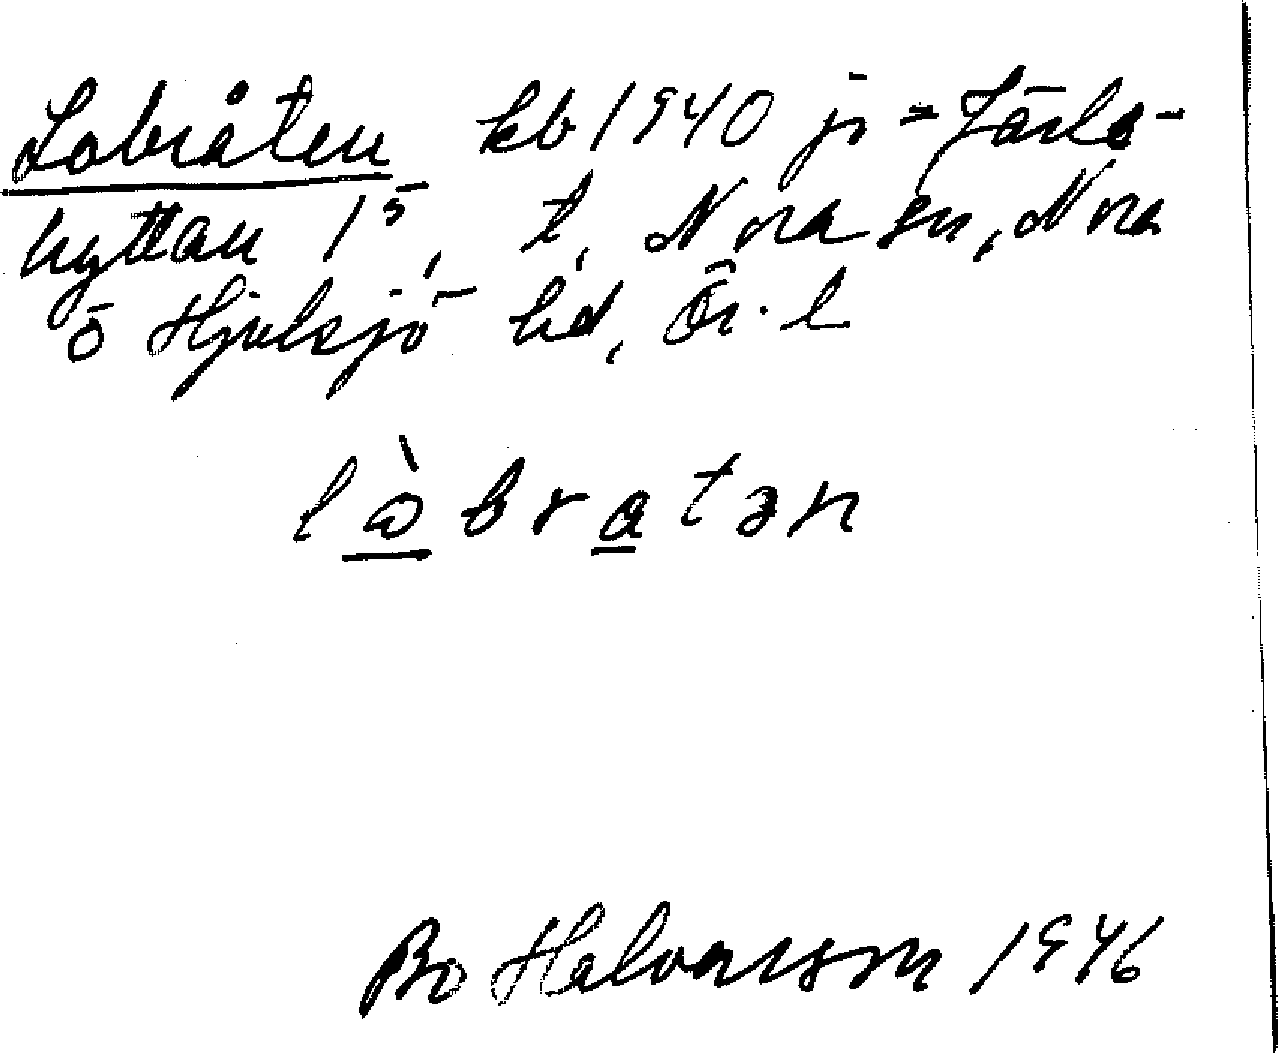 Lobråten kb 1940 jr = Järle-
hyttan 1⁵, t, Nora sn, Nora
o Hjulsjö hd, Ör. l
lòbratən
Bo Halvarsson 1946